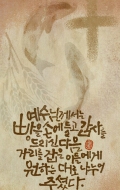 예수님께서는
빵을 손에 들고 감사를
드리신 다음
자리를 잡은 이들에게
원하는 대로 나누어
주셨다.